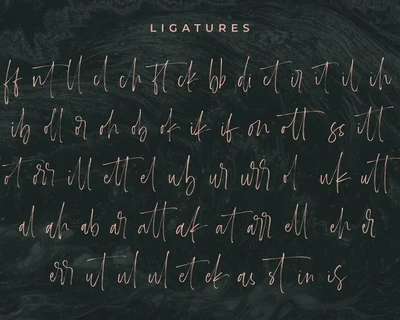 LIGATURES
ff nt ll cl ch ft ck bb di ct ir it il ih
ib oll or oh ob ok ik if on ott ss itt
ot orr ill ett el ub ur urr ol uk utt
al ah ab ar att ak at arr ell eh er
err ut ul et ek as st in is